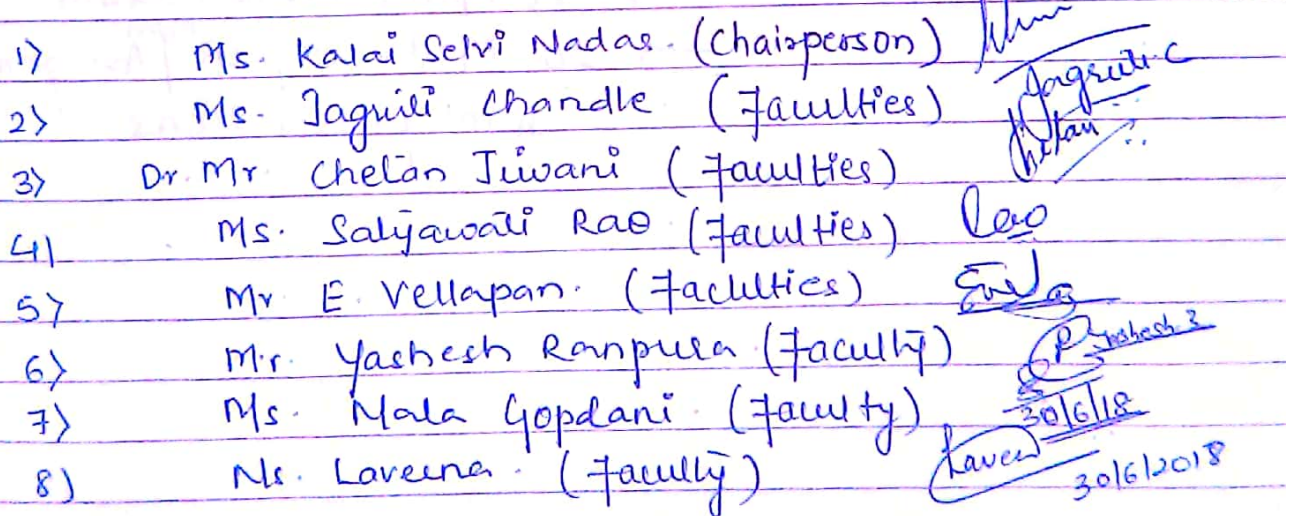 1) Ms. Kalai Selvi Nadar. (Chairperson)
2) Ms. Jagruti Chandle (Faculties) Jagruti.C
3) Dr. Mr Chetan Jiwani (Faculties) Chetan
4) Ms. Satyawati Rao (Faculties) Rao
5) Mr E. Vellapan. (Faculties)
6) Mr. Yashesh Ranpura (Faculty) Yashesh
7) Ms. Mala Gopdani. (Faculty) 30/6/18
8) Ms. Laveena. (Faculty) Laveen 30/6/2018